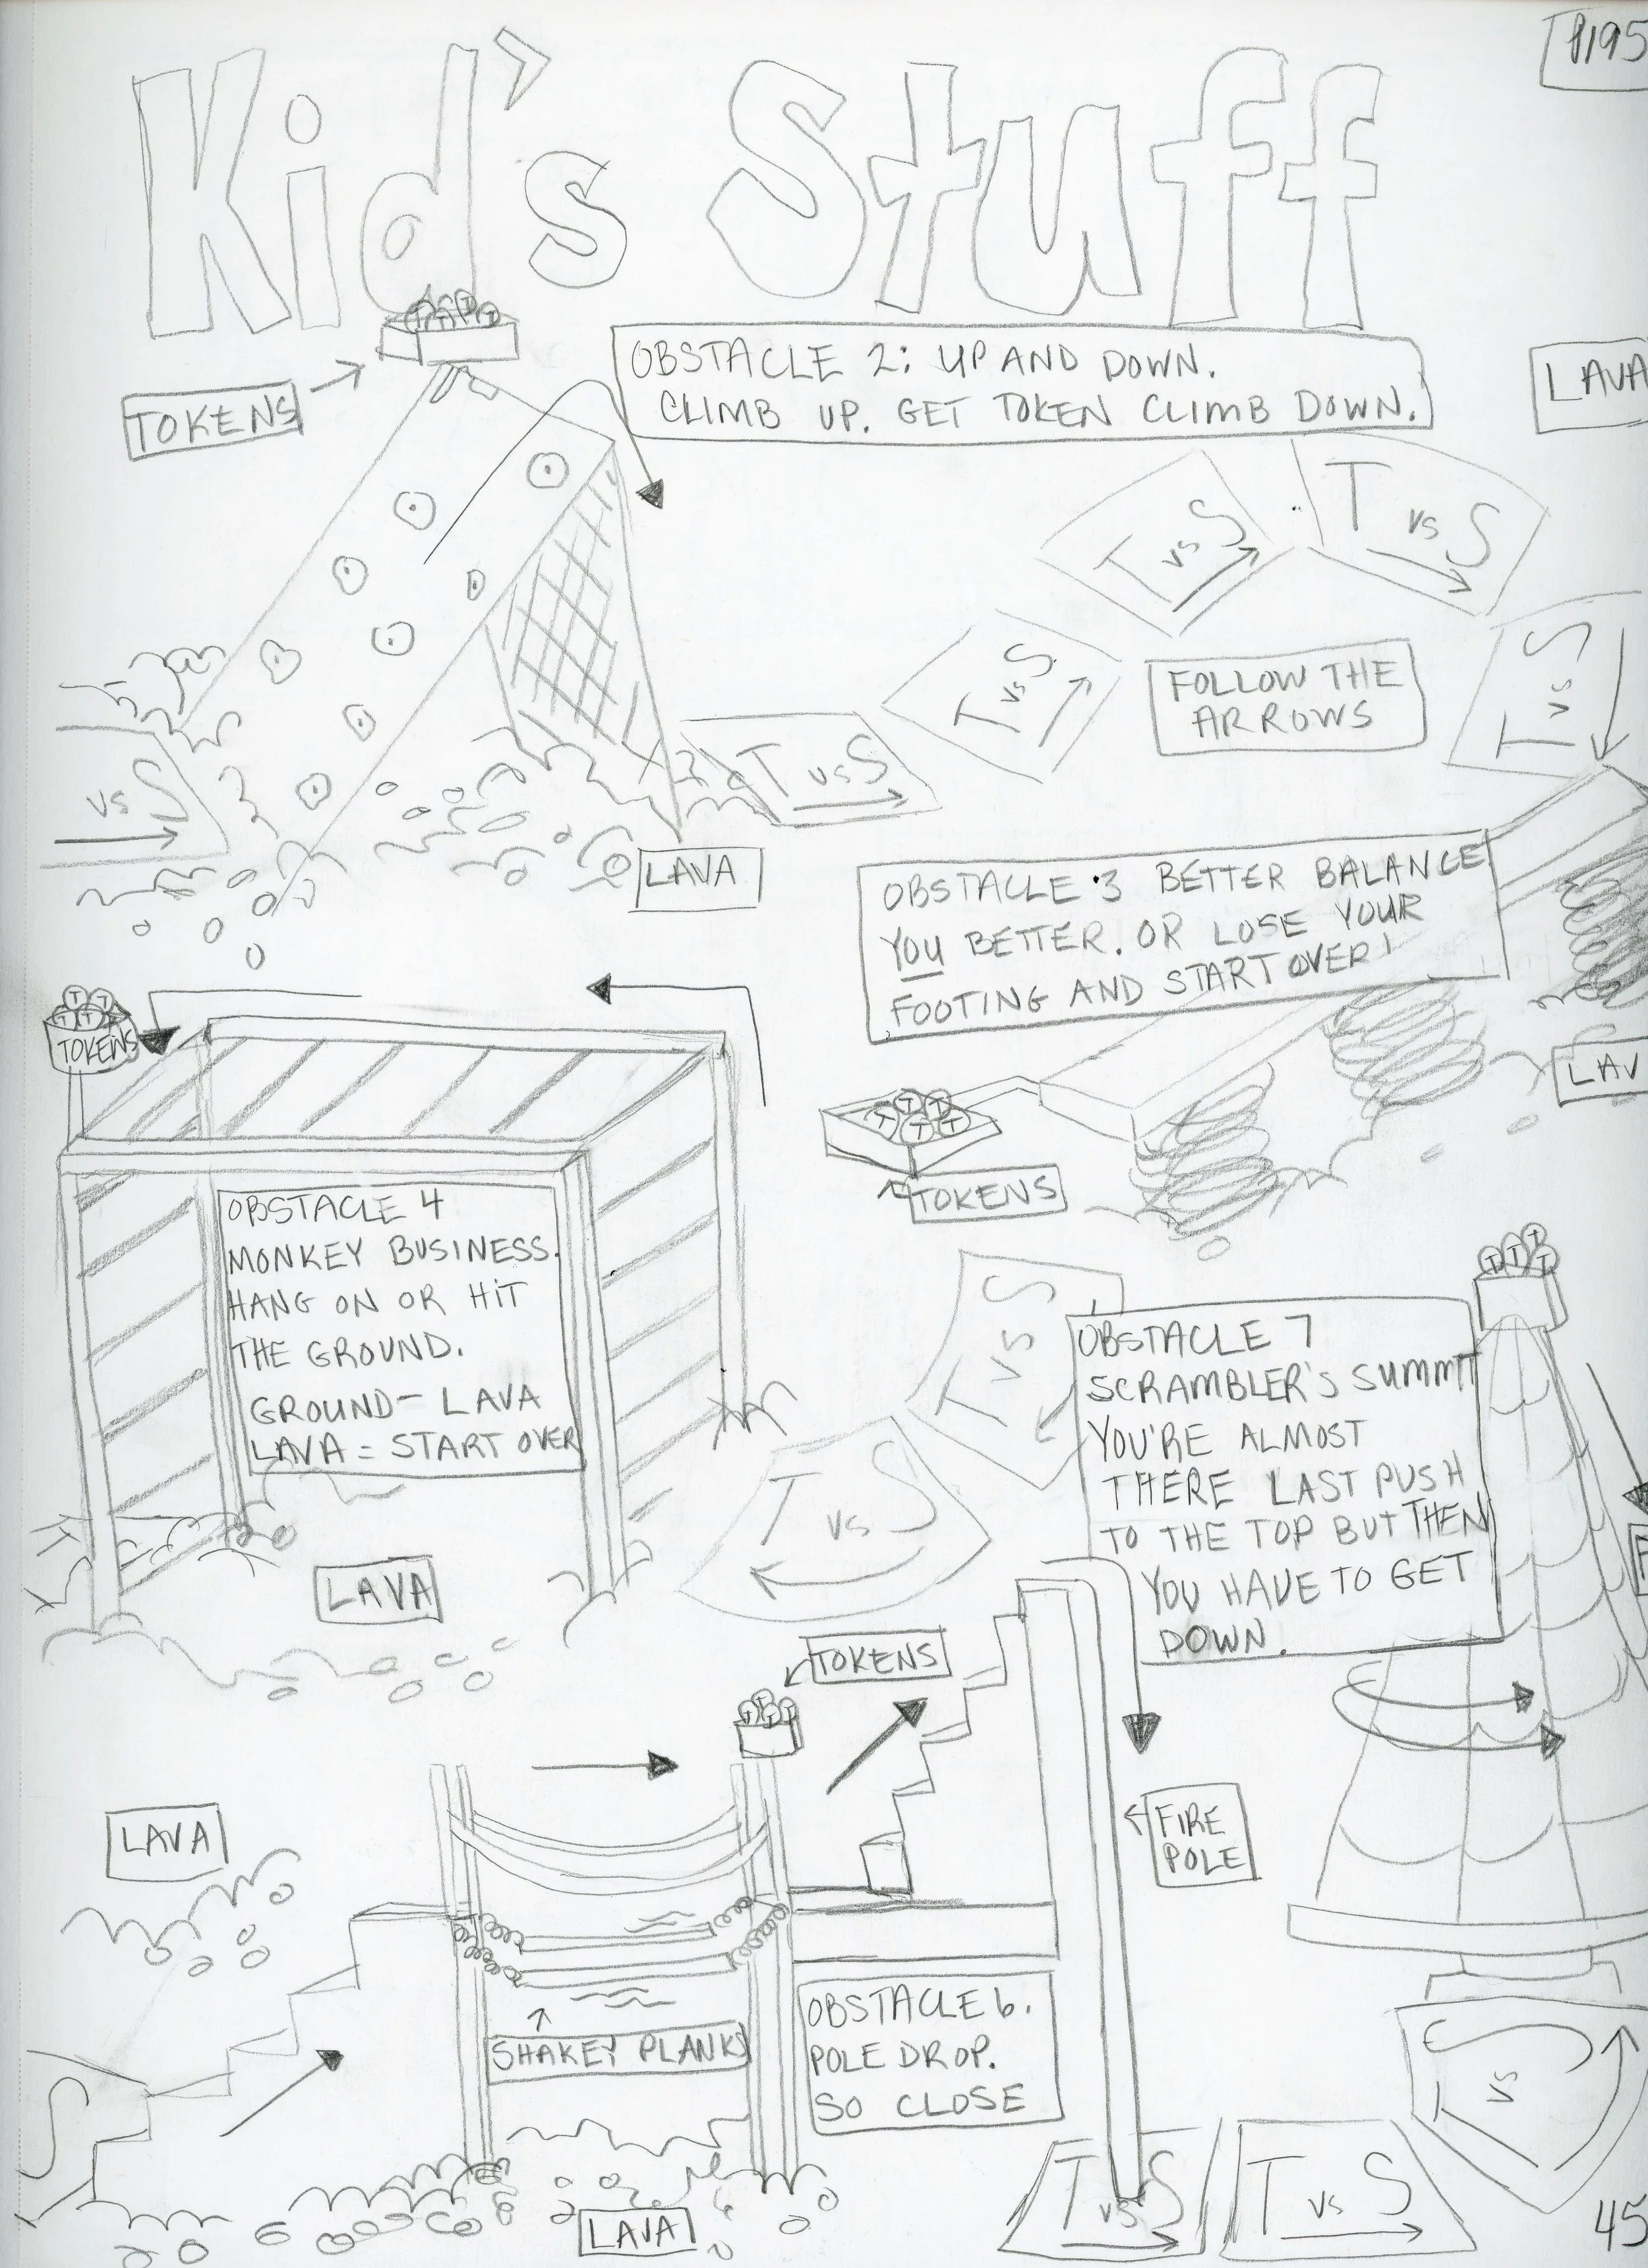 P195
Kid's Stuff
TOKENS
T T T T
OBSTACLE 2: UP AND DOWN.
CLIMB UP. GET TOKEN CLIMB DOWN.
LAVA
T vs S
T vs S
T vs S
FOLLOW THE
ARROWS
T vs S
T vs S
vs S
LAVA
OBSTACLE 3 BETTER BALANCE
YOU BETTER. OR LOSE YOUR
FOOTING AND START OVER!
T T T T
TOKENS
LAV
T T T T T
TOKENS
OBSTACLE 4
MONKEY BUSINESS.
HANG ON OR HIT
THE GROUND.
GROUND - LAVA
LAVA = START OVER
LAVA
T vs S
T vs S
T T T T
OBSTACLE 7
SCRAMBLER'S SUMMIT
YOU'RE ALMOST
THERE LAST PUSH
TO THE TOP BUT THEN
YOU HAVE TO GET
DOWN.
TOKENS
T T T T
LAVA
FIRE
POLE
SHAKEY PLANKS
OBSTACLE 6.
POLE DROP.
SO CLOSE
S
LAVA
T vs S
T vs S
T vs S
45